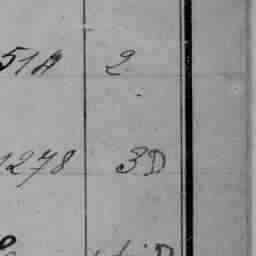 51A 2
1278 3D